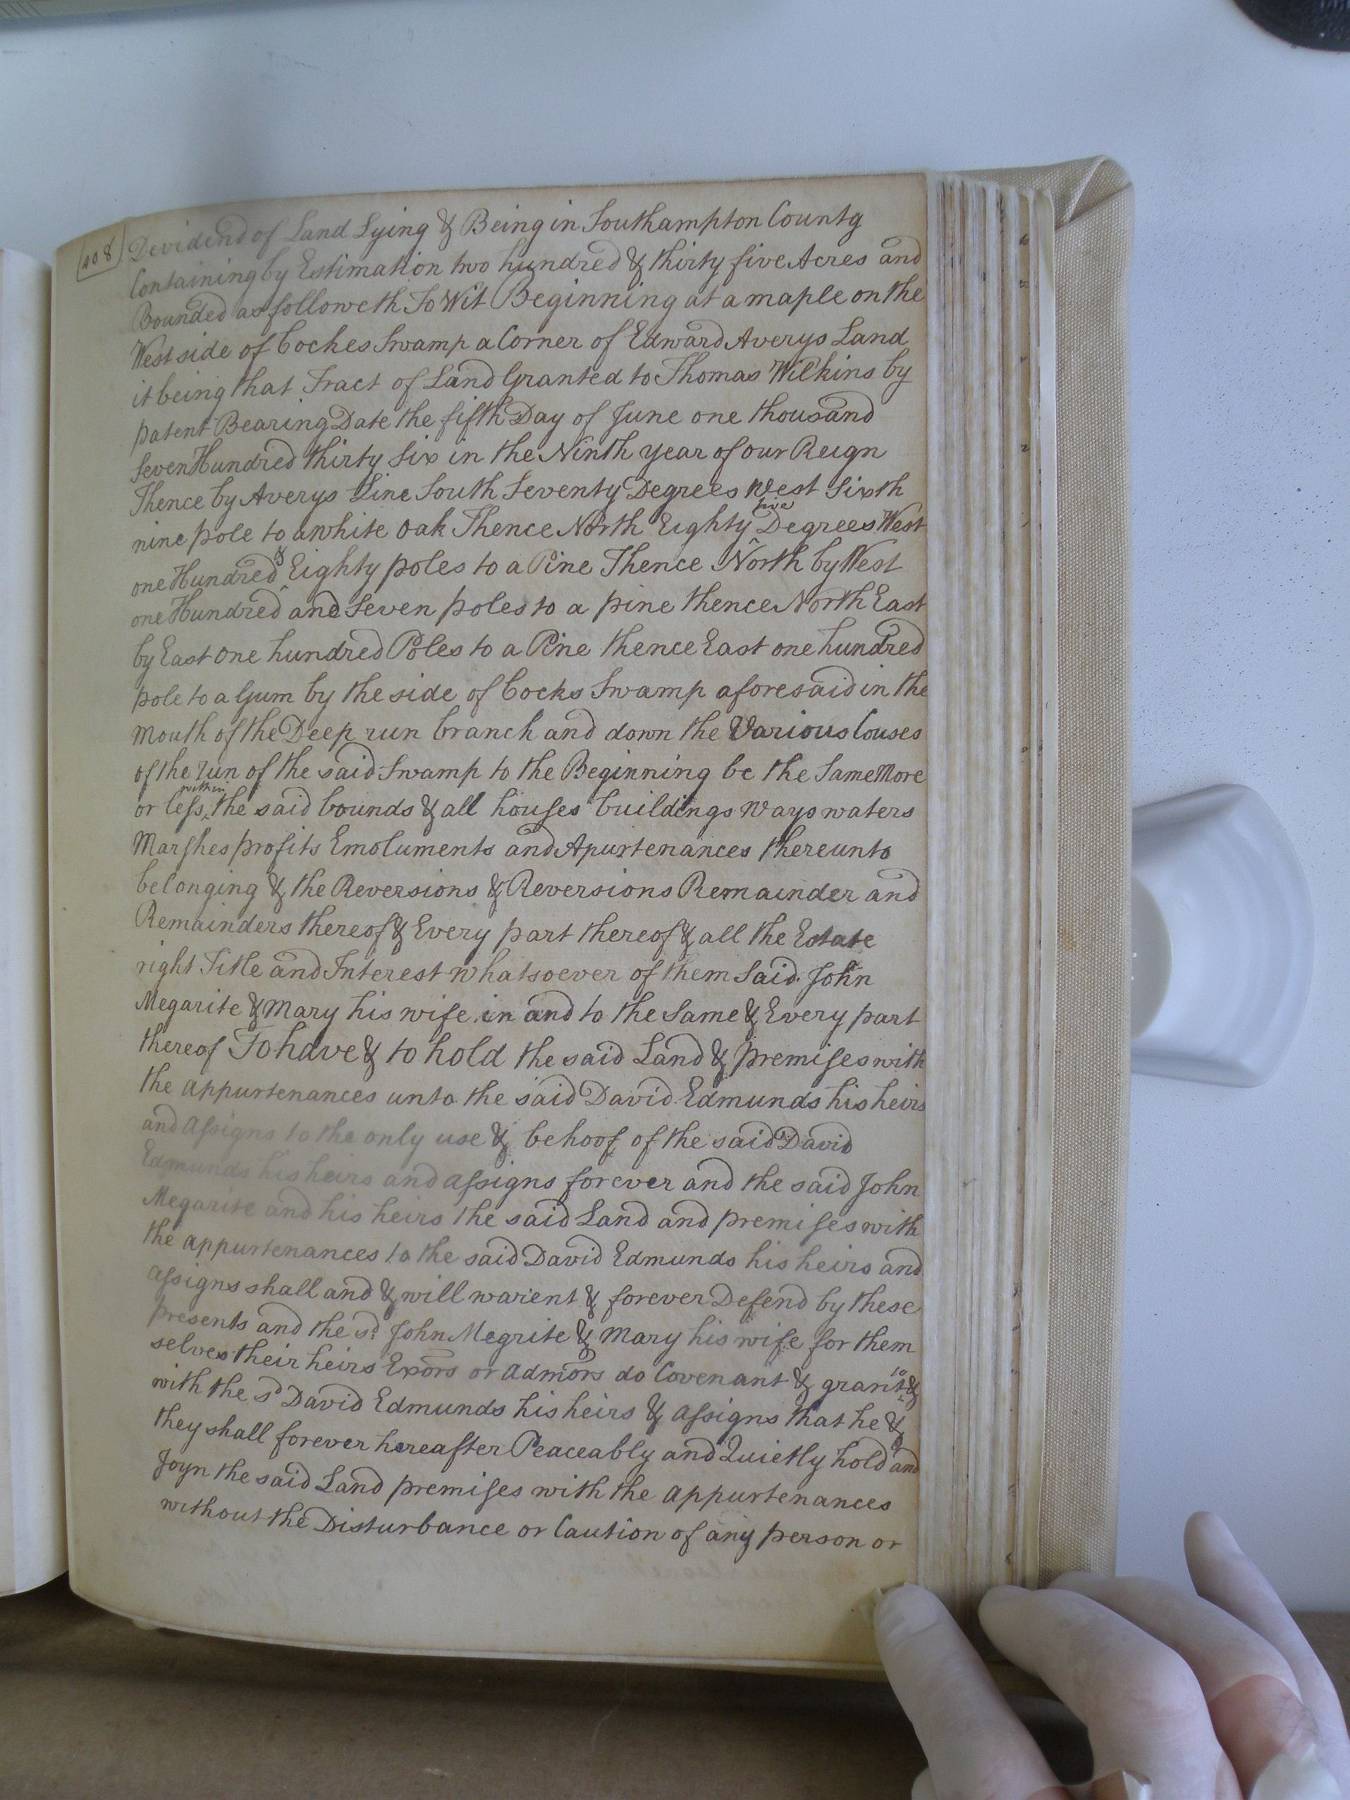 408
Devidend of Land Lying & Being in Southampton County
Containing by Estimation two hundred & thirty five Acres and
Bounded as followeth To Wit Beginning at a maple on the
West side of Cockes Swamp a Corner of Edward Averys Land
it being that Tract of Land Granted to Thomas Wilkins by
patent Bearing Date the fifth Day of June one thousand
Seven Hundred thirty Six in the Ninth year of our Reign
Thence by Averys Line South Seventy Degrees West Sixth
nine pole to a white Oak Thence North Eighty five Degrees West
one Hundred & Eighty poles to a Pine Thence North by West
one Hundred and Seven poles to a pine thence North East
by East One hundred Poles to a Pine thence East one hundred
pole to a Gum by the side of Cocks Swamp aforesaid in the
Mouth of the Deep run branch and down the Various Couses
of the run of the said Swamp to the Beginning be the Same More
or less within the said bounds & all houses buildings ways waters
Marshes profits Emoluments and Apurtenances thereunto
belonging & the Reversions & Reversions Remainder and
Remainders thereof & Every part thereof & all the Estate
right Title and Interest whatsoever of them Said John
Megarite & Mary his wife in and to the Same & Every part
thereof To have & to hold the said Land & premises with
the appurtenances unto the said David Edmunds his heirs
and assigns to the only use & behoof of the said David
Edmunds his heirs and assigns forever and the said John
Megarite and his heirs the said Land and premises with
the appurtenances to the said David Edmunds his heirs and
assigns shall and & will warent & forever Defend by these
presents and the sd John Megrite & Mary his wife for them
selves their heirs Exors or admors do Covenant & grant to &
with the sd David Edmunds his heirs & assigns that he &
they shall forever hereafter Peaceably and Quietly hold and
Joyn the said Land premises with the appurtenances
without the Disturbance or Caution of any person or